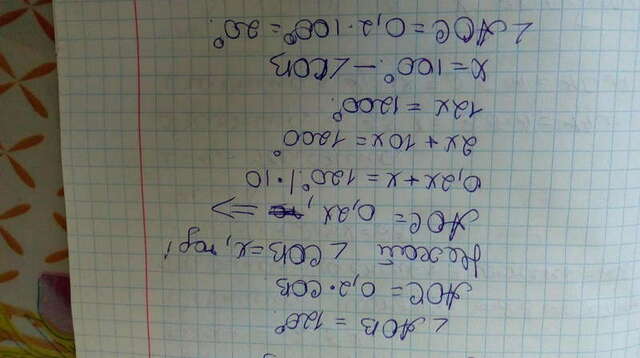 ∠AOB = 120°
AOC = 0,2·COB
Нехай ∠COB=x, тоді
AOC = 0,2x, =>
0,2x+x=120° |·10
2x+10x=1200°
12x=1200°
x=100° – ∠COB
∠AOC=0,2·100°=20°